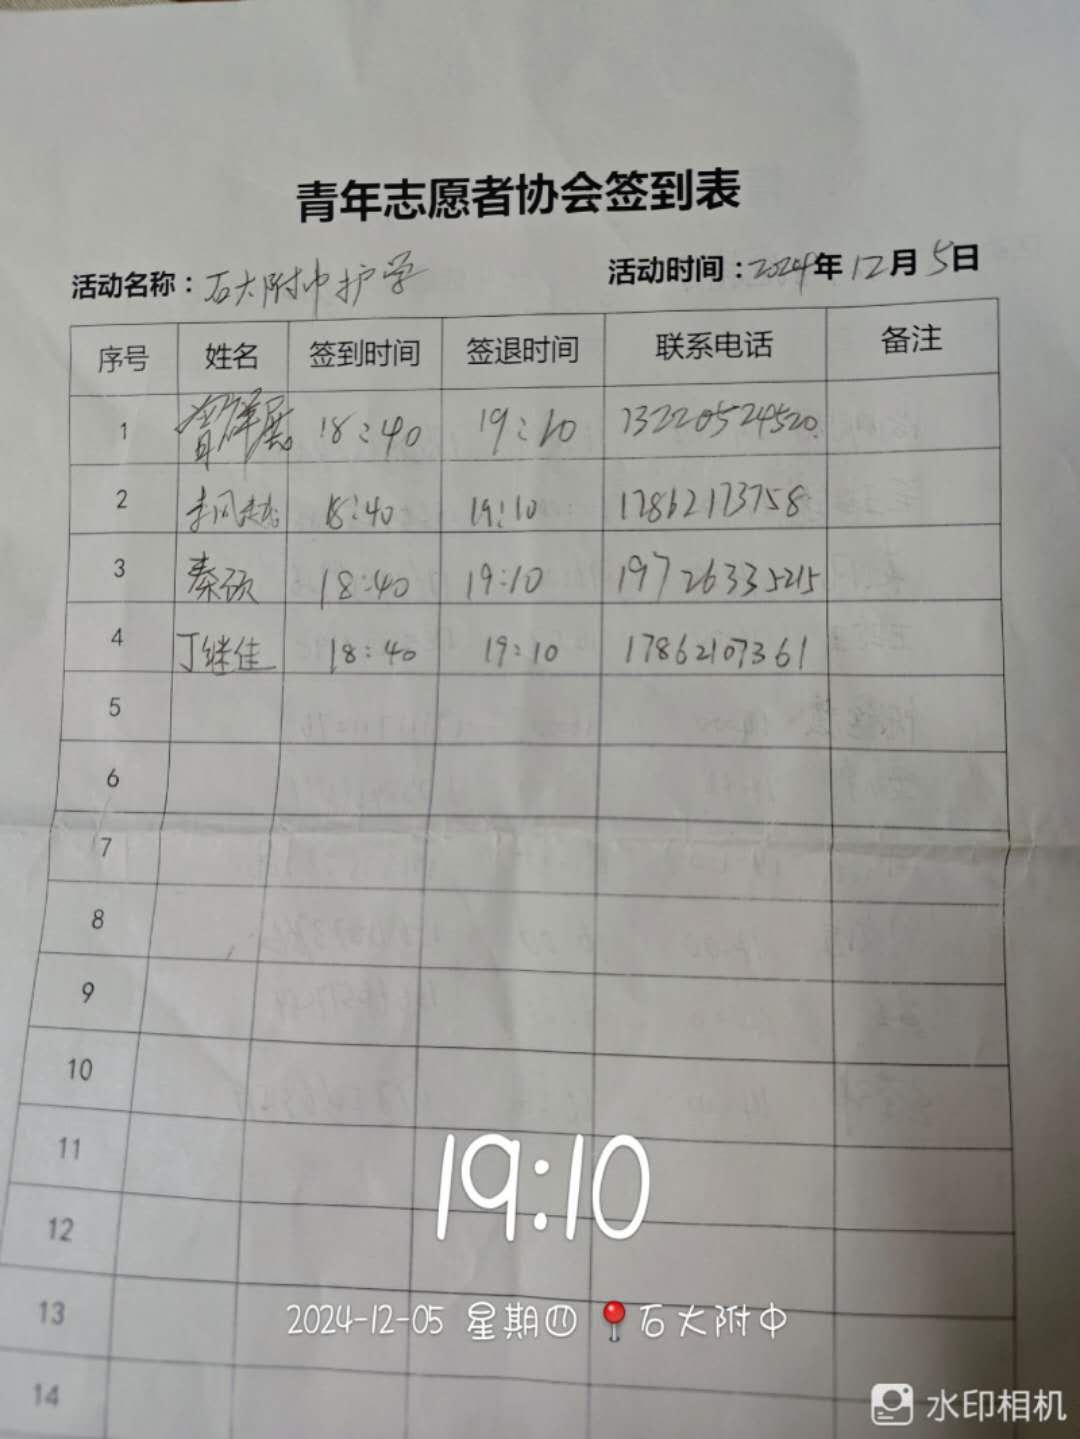 青年志愿者协会签到表
活动名称：石大附中护学 活动时间：2024年12月5日
序号 姓名 签到时间 签退时间 联系电话 备注
1 18:40 19:10 13220524520
2 李风越 18:40 19:10 17862173758
3 秦硕 18:40 19:10 19726335215
4 丁继佳 18:40 19:10 17862107361
5
6
7
8
9
10
11
12
13
14
19:10
2024-12-05 星期四 石大附中
水印相机